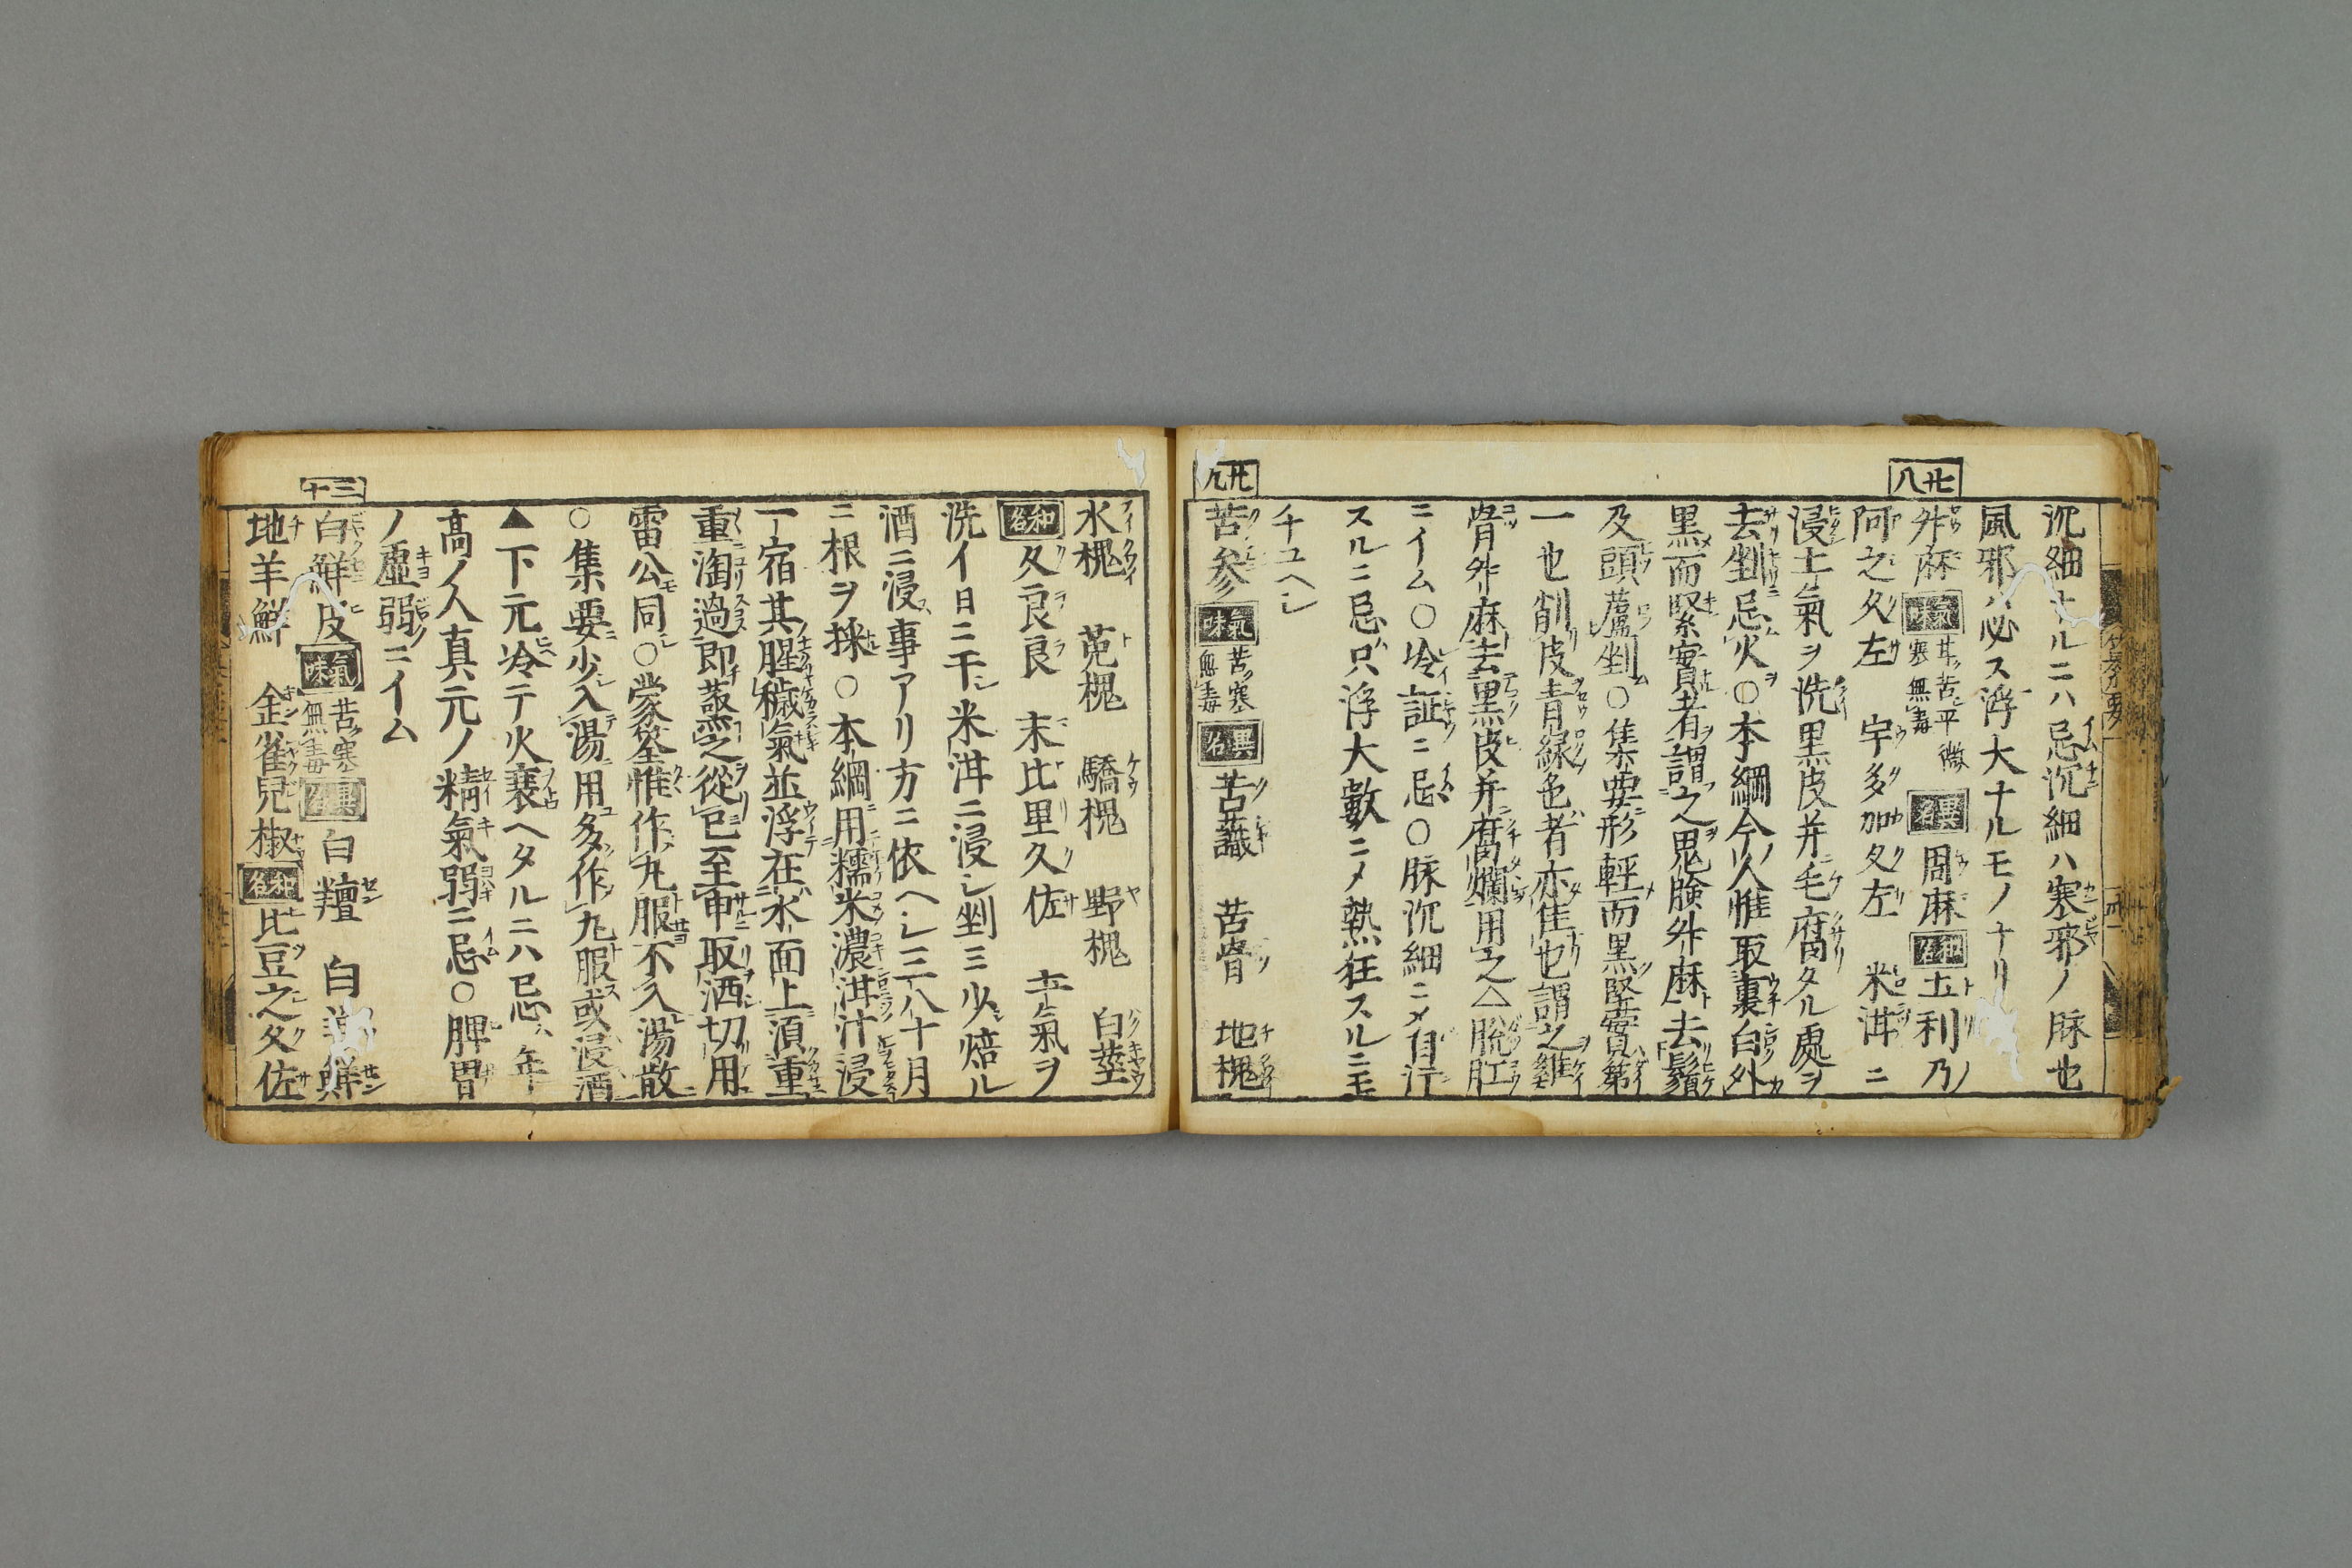 沉細ナルニハ忌沉細ハ寒邪ノ脉也
風邪ハ必ス浮大ナルモノナリ
廿八
升麻 氣味 甘苦平微寒無毒 異名 周麻 和名 止利乃
阿之久左 宇多加久左 米泔ニ
浸土氣ヲ洗黒皮并毛腐タル處ヲ
去剉忌火○本綱今人惟取裏白外
黒而緊實者謂之鬼臉升麻去鬚
及頭蘆剉○集要形輕而黒堅實第
一也削皮青緑色者亦佳也謂之雞
骨升麻去黒皮并腐爛用之△脱肛
ニイム○冷証ニ忌○脉沉細ニメ自汗
スルニ忌只浮大數ニメ熱狂スルニモ
チユヘシ
廿九
苦参 氣味 苦寒無毒 異名 苦識 苦骨 地槐
水槐 菟槐 驕槐 野槐 白莖
和名 久良良 末比里久佐 土氣ヲ
洗イ日ニ干米泔ニ浸シ剉ミ少焙ル
酒ニ浸事アリ方ニ依ヘシ三八十月
ニ根ヲ採○本綱用糯米濃泔汁浸
一宿其腥穢氣並浮在水面上須重
重淘過即蒸之從巳至申取洒切用
雷公同○蒙筌惟作丸服不入湯散
○集要少入湯用多作丸服或浸酒
▲下元冷テ火衰ヘタルニハ忌年
高ノ人真元ノ精氣弱ニ忌○脾胃
ノ虚弱ニイム
三十
白鮮皮 氣味 苦寒無毒 異名 白羶 白羊鮮
地羊鮮 金雀兒椒 和名 比豆之久佐